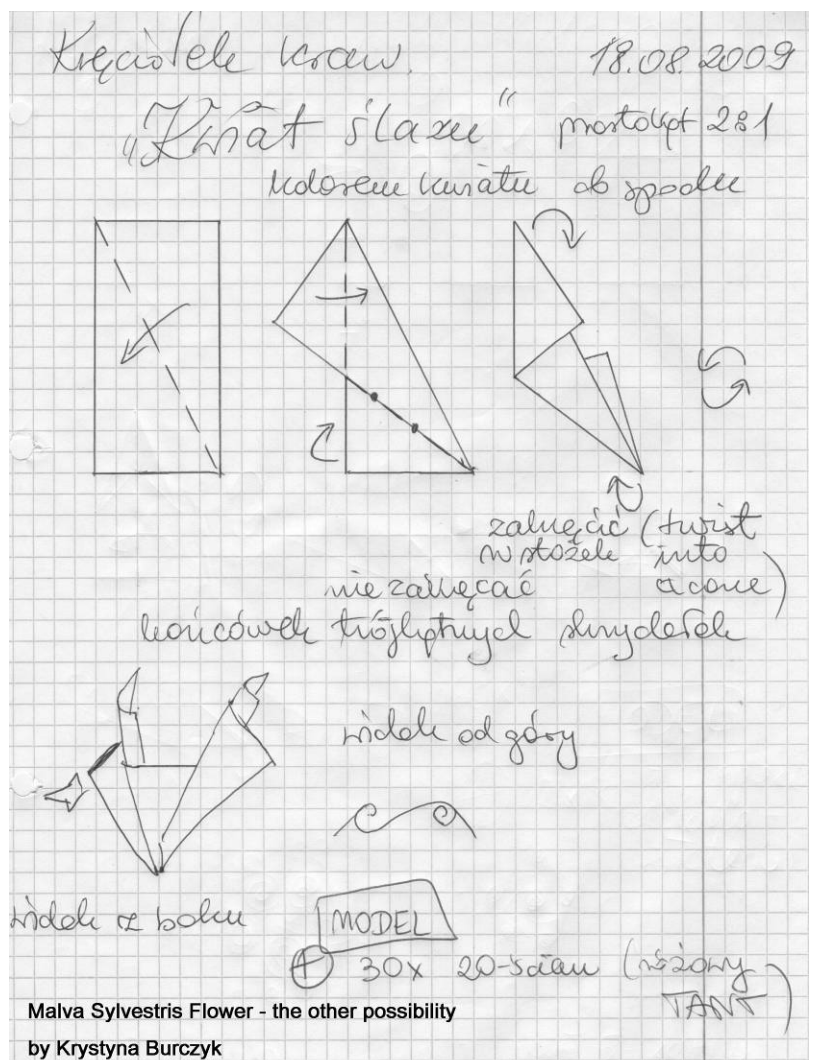 Kręciołek kraw. 18.08.2009
„Kwiat ślazu” prostokąt 2:1
kolorem kwiatu do spodu
zakręcić (twist
w stożek into
nie zakręcać a cone)
końcówek trójkątnych skrzydełek
widok od góry
widok z boku
MODEL
+ 30x 20-ścian (różowy
TANT)
Malva Sylvestris Flower - the other possibility
by Krystyna Burczyk